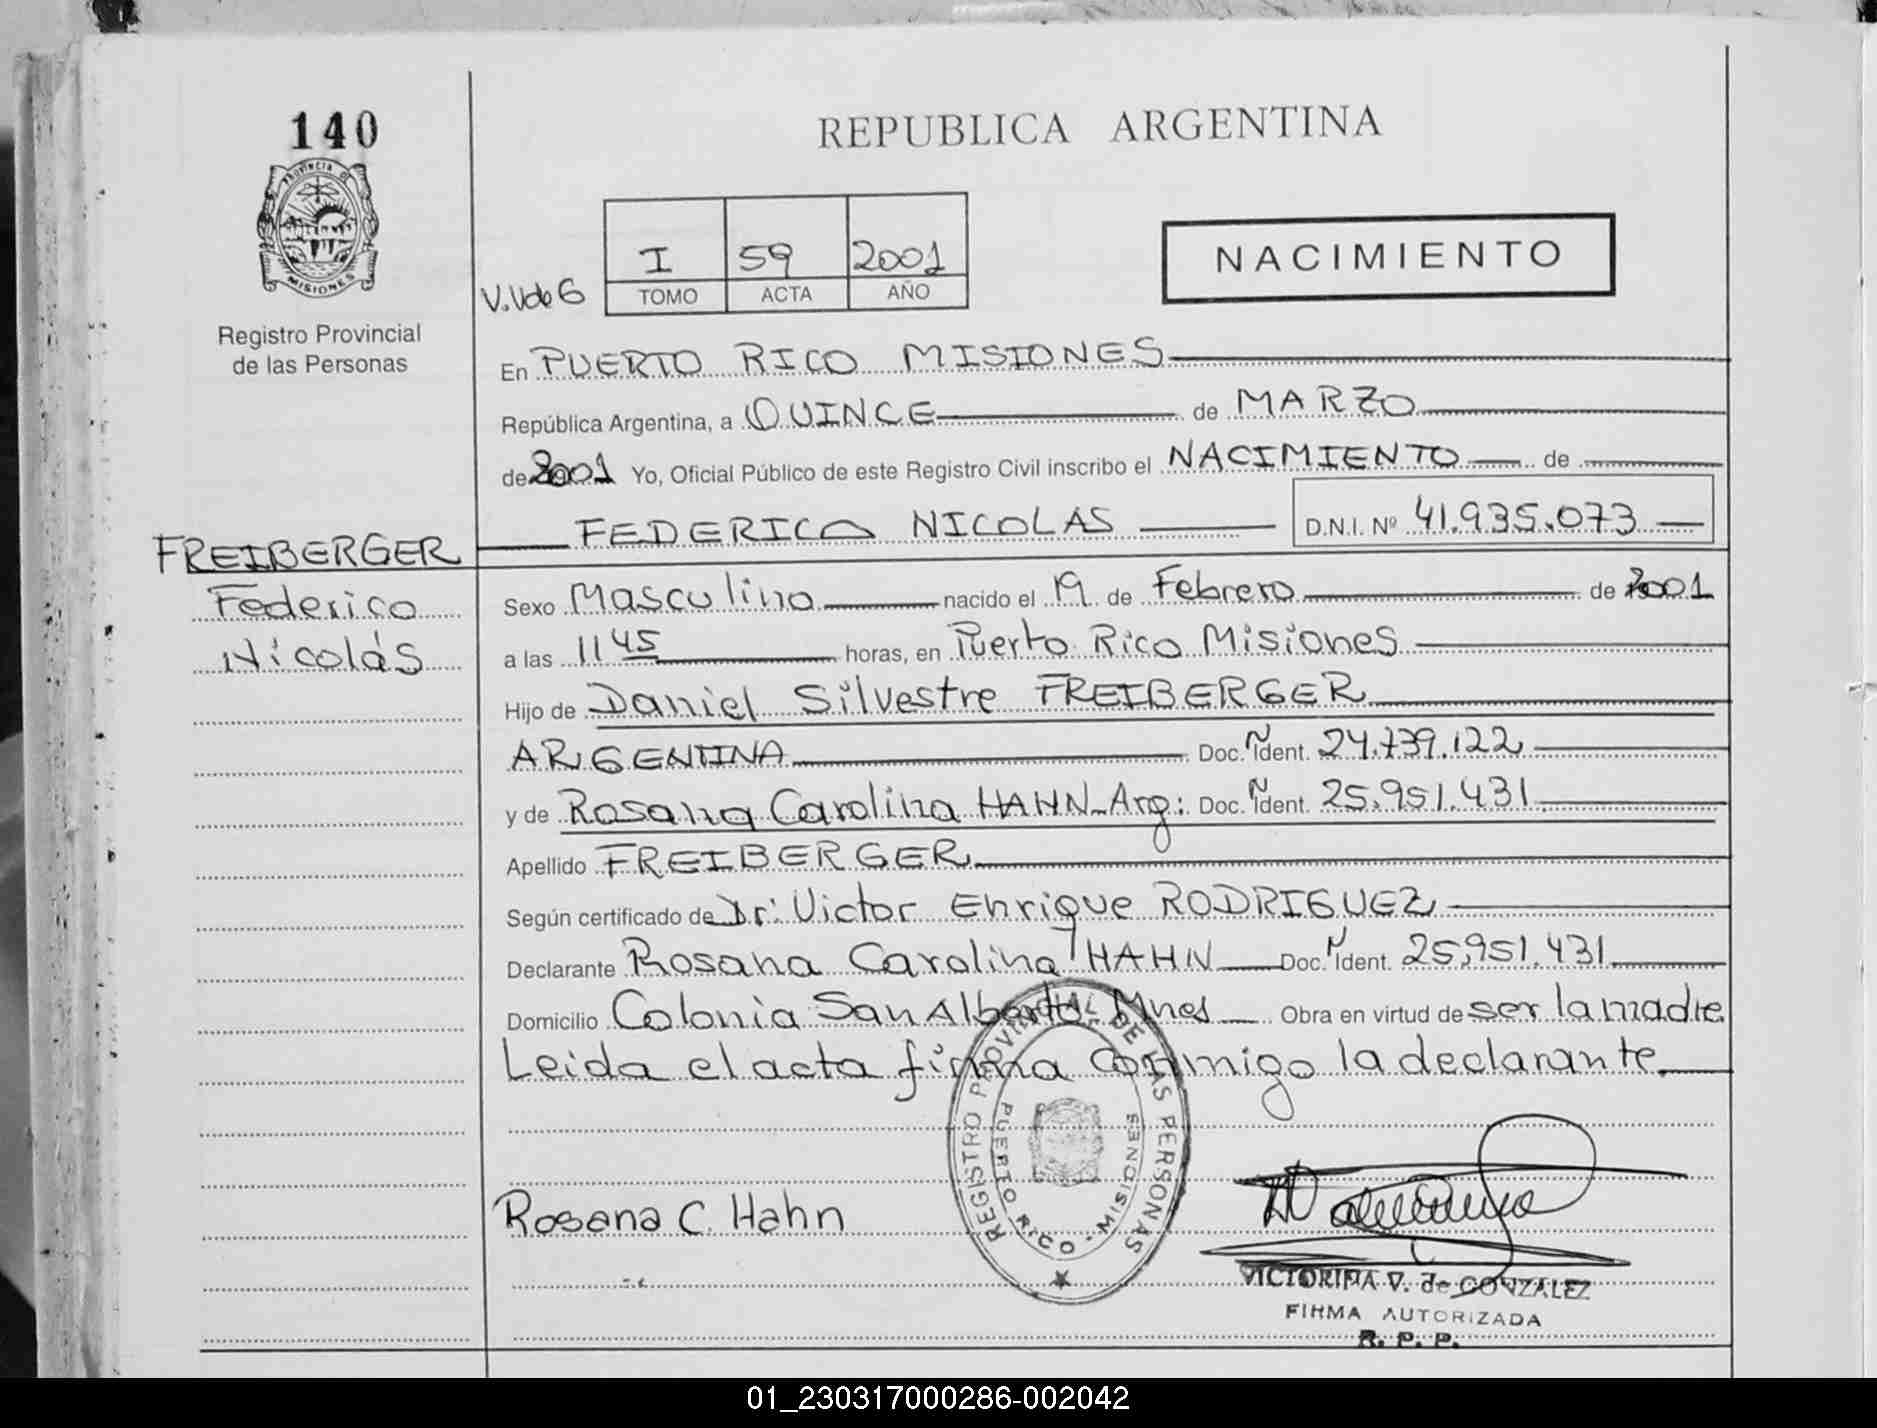 140
PROVINCIA DE
MISIONES
Registro Provincial
de las Personas
REPUBLICA ARGENTINA
I 59 2001
V.V de G TOMO ACTA AÑO
NACIMIENTO
En PUERTO RICO MISIONES
República Argentina, a QUINCE de MARZO
de 2001 Yo, Oficial Público de este Registro Civil inscribo el NACIMIENTO de
FEDERICO NICOLAS D.N.I. Nº 41.935.073
FREIBERGER
Federico
Nicolás
Sexo Masculino nacido el 19 de Febrero de 2001
a las 11 45 horas, en Puerto Rico Misiones
Hijo de Daniel Silvestre FREIBERGER
ARGENTINA Doc. Ident. 24.739.122
y de Rosana Carolina HAHN-Arg: Doc. Ident. 25.951.431
Apellido FREIBERGER
Según certificado de Dr: Victor Enrique RODRIGUEZ
Declarante Rosana Carolina HAHN Doc. Ident. 25,951.431
Domicilio Colonia San Alberto Mnes Obra en virtud de ser la madre
Leida el acta firma conmigo la declarante.
REGISTRO PROVINCIAL DE LAS PERSONAS
PUERTO RICO - MISIONES
Rosana C. Hahn
VICTORINA V. de GONZALEZ
FIRMA AUTORIZADA
R. P. P.
01_230317000286-002042